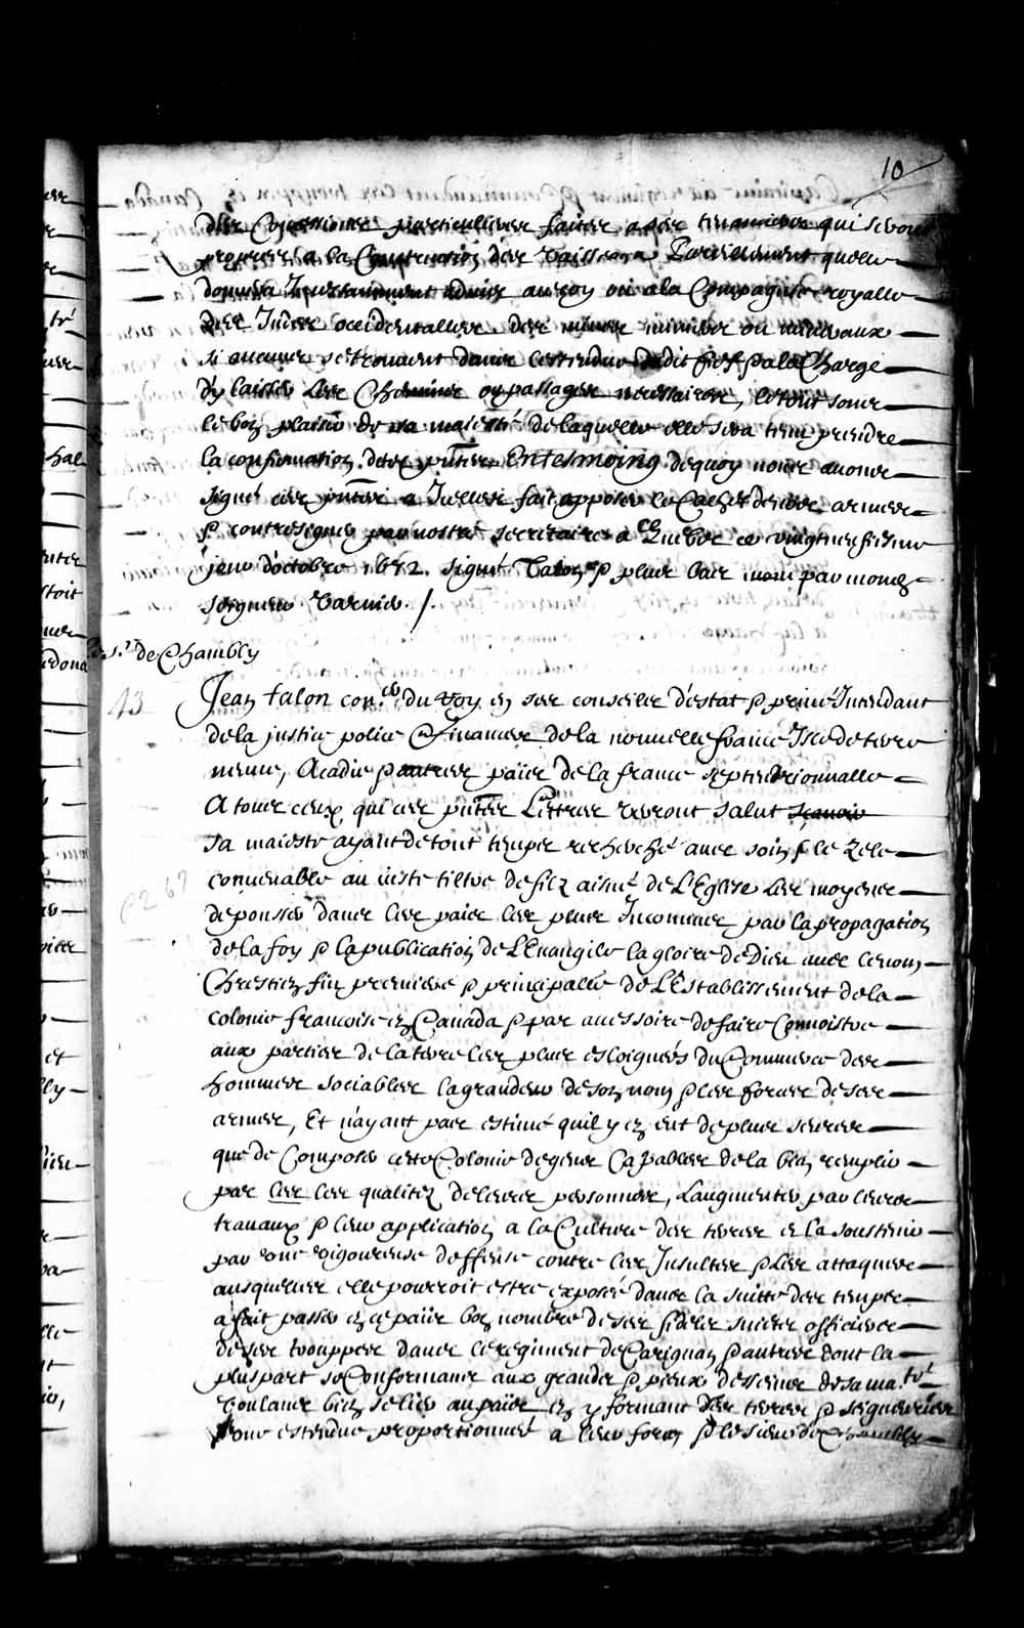 10
des Concessions particulieres faites a ses tenanciers qui seront
propres a la Construction des Vaisseaux Pareillement quelle
donnera Incessamment advis au Roy ou a la Compagnie royalle
des Indes occidentalles des mines minieres ou mineraux
si aucunes se trouuent dans lestendue dudit fief & a la Charge
d'y laisser les Chemins ou passages necessaires, le tout soubs
le bon plaisir de sa majesté de laquelle elle sera tenu prendre
la confirmation des pntes Entesmoing dequoy nous auons
signé ces pntes a Icelles fait apposer le Cachet de nos armes
& contresigner par nostre secretaire a Quebec ce vingtneufiesme
jour d'octobre 1672. signé Talon & plus bas par monse
seigneur Varnier ./.
Sr. de Chambly
13
Jean talon conr. du Roy en ses conseils d'estat & priué Intendant
de la justice police & finances de la nouuelle france Isle de terre
neuue, Acadie & autres païs de la france septentrionnalle
A tous ceux qui ces pntes Lettres verront salut
sa maieste ayant de tout temps recherché auec soin & le zele
conuenable au iuste tiltre de filz aisné de L'Eglise les moyens
de pousser dans les pais les plus Inconnues par la propagation
de la foy & la publication de L'Euangile la gloire de Dieu auec le nom
Chrestien fin premiere & principalle de L'Establissement de la
colonie francoise en Canada & par accessoire de faire Connoistre
aux parties de la terre les plus esloignées du Commerce des
hommes sociables la grandeur de son nom & les forces de ses
armes, Et n'ayant pas estimé quil y en eut de plus seures
que de Composer cette Colonie de gens Capables de la bien remplir
par les les qualitez de leurs personnes, L'augmenter par leurs
trauaux & leur application a la Culture des terres & la soustenir
par vne vigoureuse deffense contre les Insultes & les attaques
ausquelles elle pourroit estre exposée dans la suitte des temps
a fait passer en ce païs bon nombre de ses fideles suiets officiers
de ses trouppes dans le regiment de Carignan & autres dont la
pluspart se Conformans aux grands & pieux desseins de sa ma.té
Voulans bien se lier au païs en y formant des terres & seigneuries
d'une estendue proportionnée a leur force & le sieur de Chambly